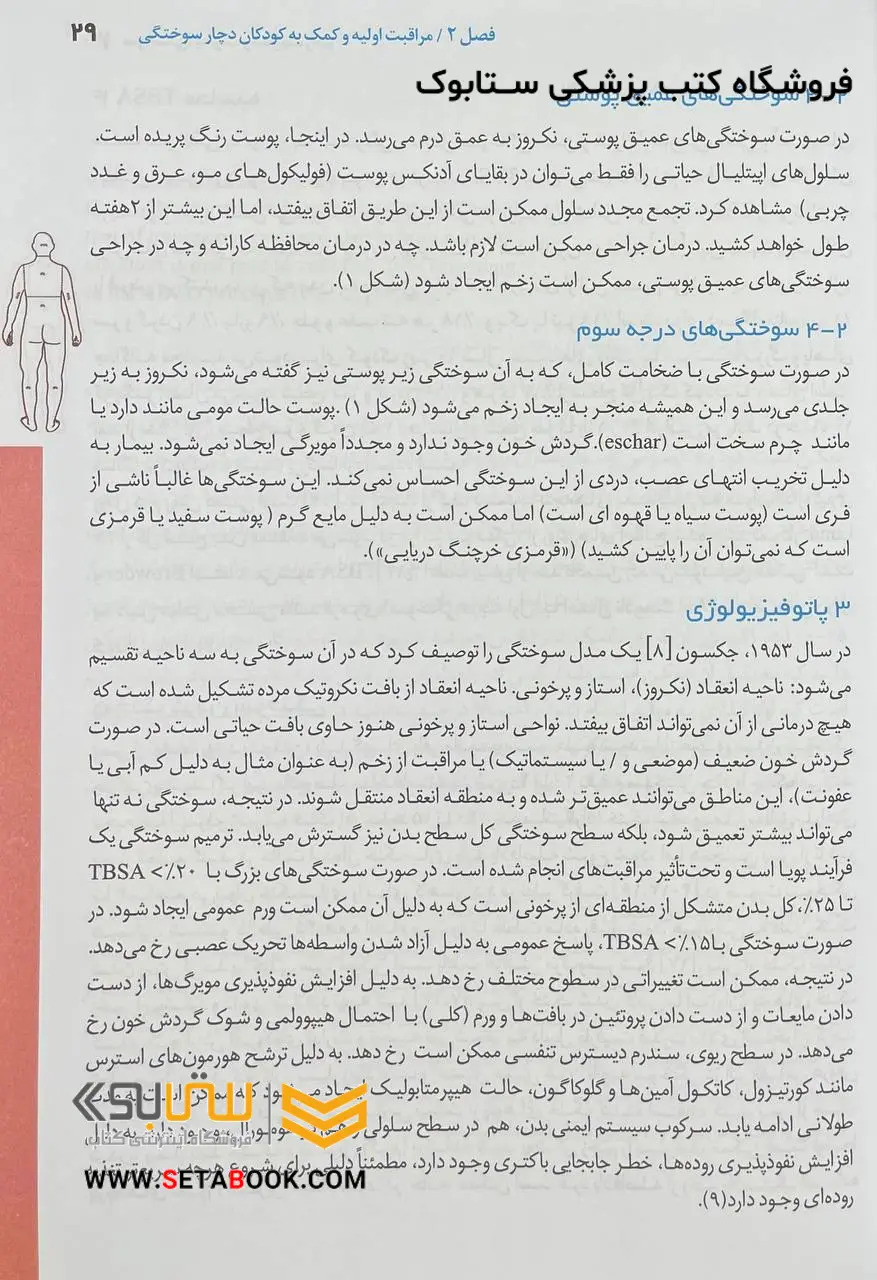 فصل ۲ / مراقبت اولیه و کمک به کودکان دچار سوختگی ۲۹
فروشگاه کتب پزشکی ستابوک
سوختگی‌های عمیق پوستی
در صورت سوختگی‌های عمیق پوستی، نکروز به عمق درم می‌رسد. در اینجا، پوست رنگ پریده است.
سلول‌های اپیتلیال حیاتی را فقط می‌توان در بقایای آدنکس پوست (فولیکول‌های مو، عرق و غدد
چربی) مشاهده کرد. تجمع مجدد سلول ممکن است از این طریق اتفاق بیفتد، اما این بیشتر از ۲هفته
طول خواهد کشید. درمان جراحی ممکن است لازم باشد. چه در درمان محافظه کارانه و چه در جراحی
سوختگی‌های عمیق پوستی، ممکن است زخم ایجاد شود (شکل ۱).
۴-۲ سوختگی‌های درجه سوم
در صورت سوختگی با ضخامت کامل، که به آن سوختگی زیر پوستی نیز گفته می‌شود، نکروز به زیر
جلدی می‌رسد و این همیشه منجر به ایجاد زخم می‌شود (شکل ۱) .پوست حالت مومی مانند دارد یا
مانند چرم سخت است (eschar).گردش خون وجود ندارد و مجدداً مویرگی ایجاد نمی‌شود. بیمار به
دلیل تخریب انتهای عصب، دردی از این سوختگی احساس نمی‌کند. این سوختگی‌ها غالباً ناشی از
فری است (پوست سیاه یا قهوه ای است) اما ممکن است به دلیل مایع گرم ( پوست سفید یا قرمزی
است که نمی‌توان آن را پایین کشید) («قرمزی خرچنگ دریایی»).
۳ پاتوفیزیولوژی
در سال ۱۹۵۳، جکسون [۸] یک مدل سوختگی را توصیف کرد که در آن سوختگی به سه ناحیه تقسیم
می‌شود: ناحیه انعقاد (نکروز)، استاز و پرخونی. ناحیه انعقاد از بافت نکروتیک مرده تشکیل شده است که
هیچ درمانی از آن نمی‌تواند اتفاق بیفتد. نواحی استاز و پرخونی هنوز حاوی بافت حیاتی است. در صورت
گردش خون ضعیف (موضعی و / یا سیستماتیک) یا مراقبت از زخم (به عنوان مثال به دلیل کم آبی یا
عفونت)، این مناطق می‌توانند عمیق‌تر شده و به منطقه انعقاد منتقل شوند. در نتیجه، سوختگی نه تنها
می‌تواند بیشتر تعمیق شود، بلکه سطح سوختگی کل سطح بدن نیز گسترش می‌یابد. ترمیم سوختگی یک
فرآیند پویا است و تحت‌تأثیر مراقبت‌های انجام شده است. در صورت سوختگی‌های بزرگ با TBSA >٪۲۰
تا ۲۵٪،کل بدن متشکل از منطقه‌ای از پرخونی است که به دلیل آن ممکن است ورم عمومی ایجاد شود. در
صورت سوختگی با TBSA >٪۱۵، پاسخ عمومی به دلیل آزاد شدن واسطه‌ها تحریک عصبی رخ می‌دهد.
در نتیجه، ممکن است تغییراتی در سطوح مختلف رخ دهد. به دلیل افزایش نفوذپذیری مویرگ‌ها، از دست
دادن مایعات و از دست دادن پروتئین در بافت‌ها و ورم (کلی) با احتمال هیپوولمی و شوک گردش خون رخ
می‌دهد. در سطح ریوی، سندرم دیسترس تنفسی ممکن است رخ دهد. به دلیل ترشح هورمون‌های استرس
مانند کورتیزول، کاتکول آمین‌ها و گلوکاگون، حالت هیپرمتابولیک ایجاد می‌شود که
طولانی ادامه یابد. سرکوب سیستم ایمنی بدن، هم در سطح سلولی و هم
افزایش نفوذپذیری روده‌ها، خطر جابجایی باکتری وجود دارد، مطمئناً دلیلی برای شروع هرچه سریع‌تر تغذیه
روده‌ای وجود دارد(۹).
ستابوک
فروشگاه اینترنتی کتاب
WWW.SETABOOK.COM